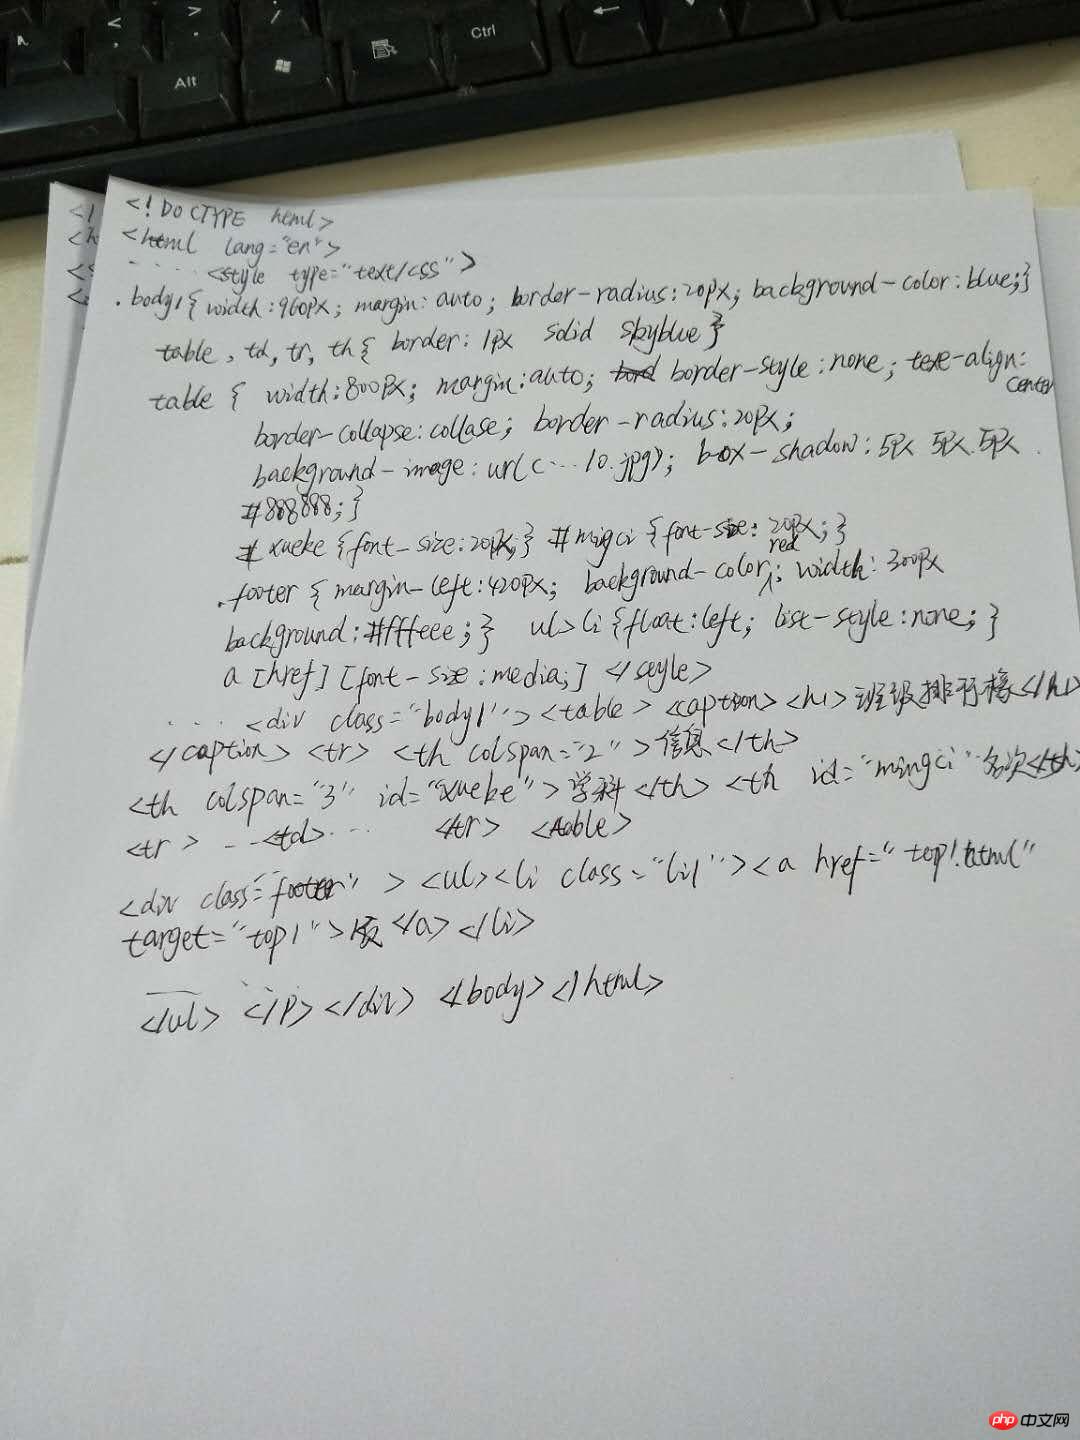 Alt
Ctrl
<! DOCTYPE heml>
<html lang="en">
..... <style type="text/css">
.body1{width:960px; margin: auto; border-radius:20px; background-color:blue;}
table, td, tr, th{ border: 1px solid skyblue }
table { width:800px; margin:auto; border-style:none; text-align:
center
border-collapse:collase; border-radius:20px;
background-image: url(c...10.jpg); box-shadow: 5px 5px 5px
#888888;}
# xueke {font-size:20px;} # mingci {font-size: 20px;}
red
.footer { margin-left:420px; background-color; width: 300px
background:#fffeee;} ul>li{float:left; list-style:none;}
a [href] [font-size:media;] </style>
.... <div class="body1"><table> <caption> <h1>班级排行榜</h1>
</caption> <tr> <th colspan="2">信息</th>
<th colspan="3" id="xueke">学科</th> <th id="mingci" 名次</th>
<tr> ..<td>... </tr> <table>
<div class="footer" > <ul><li class="li1"><a href="top1.html"
target="top1"> </a></li>
</ul> </p></div> </body></html>
php 中文网